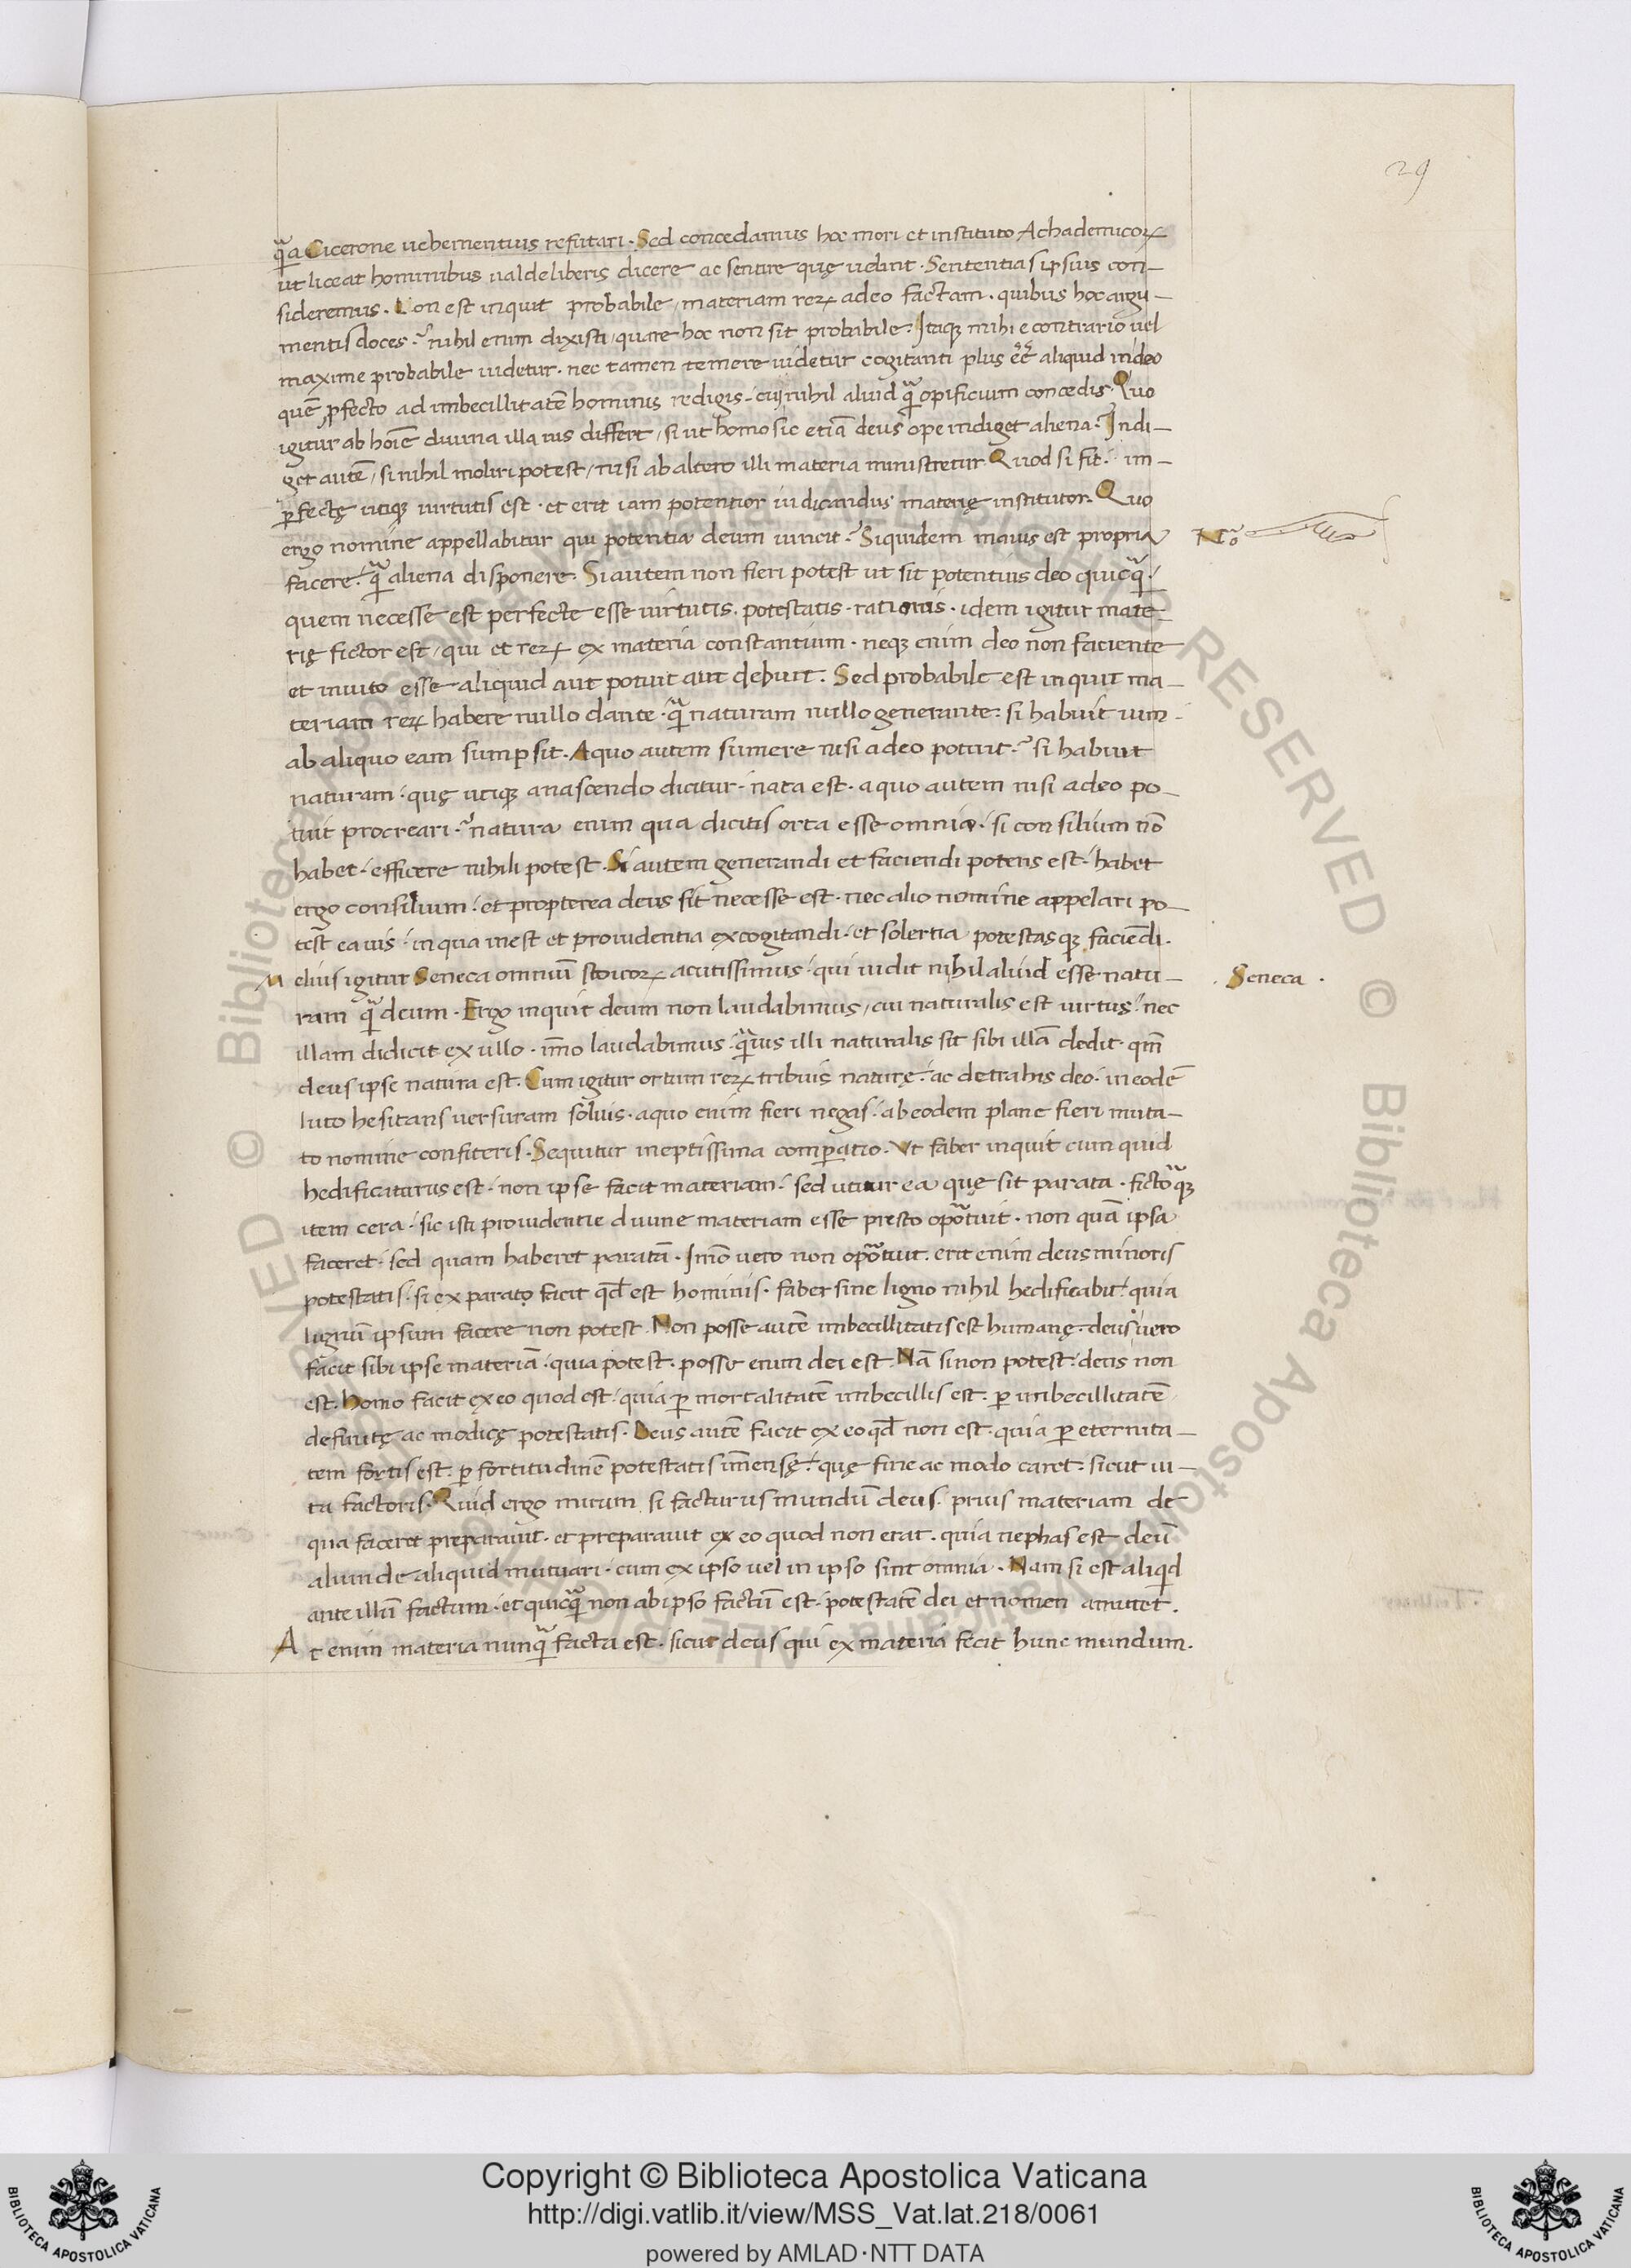 29
qᷓa Cicerone uehementius refutari. Sed concedamus hoc mori et instituto Achademicoꝝ
ut liceat hominibus ualde liberis dicere ac sentire quę uelint. Sententias ipsius con-
sideremus. Non est inquit probabile, materiam reꝝ adeo factam. quibus hoc argu-
mentis doces? nihil enim dixisti, quare hoc non sit probabile. Itaqꝫ mihi e contrario uel
maxime probabile uidetur. nec tamen temere uidetur cogitanti plus eē aliquid in deo
quē ꝓfecto ad imbecillitatē hominis redigis. cui nihil aliud qᷓ opificium concedis. Quo
igitur ab hoīe diuina illa uis differt, si ut homo sic etiā deus ope indiget aliena? Indi-
get autē, si nihil moliri potest, nisi ab altero illi materia ministretur. Quod si fit. im-
ꝑfectę utiqꝫ uirtutis est. et erit iam potentior iudicandus materię institutor. Quo
ergo nomine appellabitur qui potentia deum uincit? Siquidem maius est propria
facere. qᷓ aliena disponere. Si autem non fieri potest ut sit potentius deo quicqᷓ.
quem necesse est perfecte esse uirtutis. potestatis. rationis. idem igitur mate-
rię fictor est, qui et reꝝ ex materia constantium. neqꝫ enim deo non faciente
et inuito esse aliquid aut potuit aut debuit. Sed probabile est inquit ma-
teriam reꝝ habere nullo dante. qᷓ naturam nullo generante. si habuit uim.
ab aliquo eam sumpsit. A quo autem sumere nisi adeo potuit? si habuit
naturam. quę utiqꝫ anascendo dicitur. nata est. a quo autem nisi adeo po-
tuit procreari? natura enim qua dicitis orta esse omnia. si consilium nō
habet. efficere nihili potest. Si autem generandi et faciendi potens est. habet
ergo consilium. et propterea deus sit necesse est. nec alio nomine appelari po-
test ea uis. in qua inest et prouidentia excogitandi. et solertia potestasqꝫ faciēdi.
Melius igitur Seneca omniū stoicoꝝ acutissimus. qui uidit nihil aliud esse natu-
ram qᷓ deum. Ergo inquit deum non laudabimus, cui naturalis est uirtus. nec
illam didicit ex ullo. īmo laudabimus. qᷓuis illi naturalis sit sibi illā dedit. qm̄
deus ipse natura est. Cum igitur ortum reꝝ tribuis naturę. ac detrahis deo. in eodē
luto hesitans uersuram soluis. aquo enim fieri negas. ab eodem plane fieri muta-
to nomine confiteris. Sequitur ineptissima comꝑatio. Vt faber inquit cum quid
hedificaturus est. non ipse facit materiam. sed utitur ea quę sit parata. fictorqꝫ
item cera. sic isti prouidentie diuine materiam esse presto oportuit. non quā ipsa
faceret. sed quam haberet paratā. Imō uero non oportuit. erit enim deus minoris
potestatis. si ex parato facit qd̄ est hominis. faber sine ligno nihil hedificabit. quia
lignū ipsum facere non potest. Non posse autē imbecillitatis est humanę. deus uero
facit sibi ipse materiā. quia potest. posse enim dei est. Nā si non potest. deus non
est. Homo facit ex eo quod est. quia ꝑ mortalitatē imbecillis est. ꝑ imbecillitatē
definitę ac modicę potestatis. Deus autē facit ex eo qd̄ non est. quia ꝑ eternita-
tem fortis est. ꝑ fortitudinē potestatis īmensę. quę fine ac modo caret. sicut ui-
ta factoris. Quid ergo mirum si facturus mundū deus. prius materiam de
qua faceret preparauit. et preparauit ex eo quod non erat. quia nephas est deū
aliunde aliquid mutuari. cum ex ipso uel in ipso sint omnia. Nam si est aliqid
ante illū factum. et quicqᷓ non ab ipso factū est. potestatē dei et nomen amittet.
At enim materia nunqᷓ facta est. sicut deus qui ex materia fecit hunc mundum.
Nᵒ
. Seneca .
© Biblioteca Apostolica Vaticana ALL RIGHTS RESERVED
Copyright © Biblioteca Apostolica Vaticana
http://digi.vatlib.it/view/MSS_Vat.lat.218/0061
powered by AMLAD·NTT DATA
BIBLIOTECA APOSTOLICA VATICANA
BIBLIOTECA APOSTOLICA VATICANA